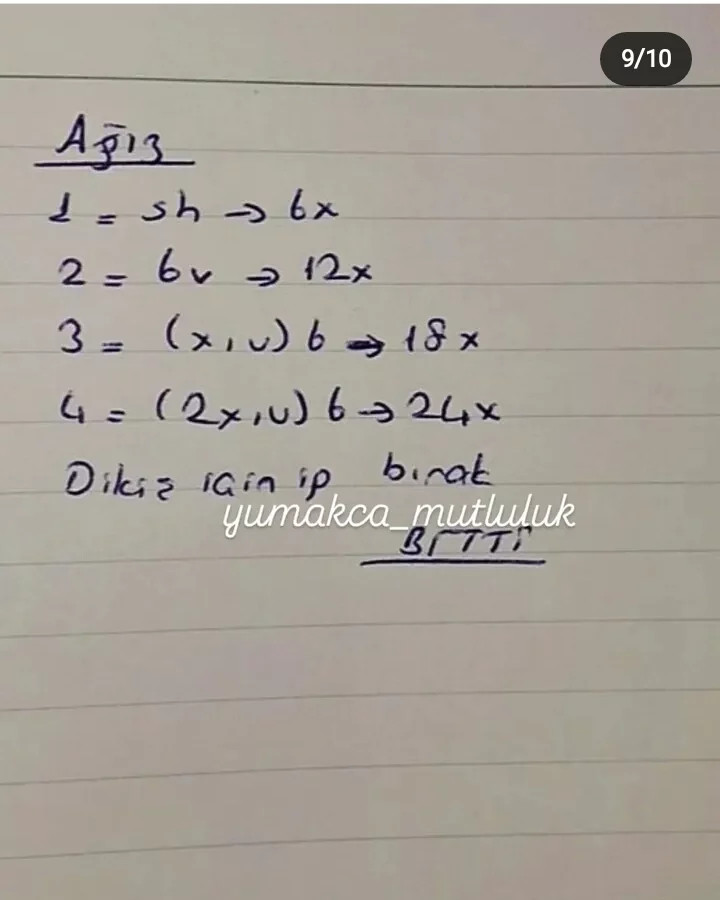 9/10
Ağız
1 = sh → 6x
2 = 6v → 12x
3 = (x,v) 6 → 18x
4 = (2x,v) 6 → 24x
Dikiş için ip bırak
yumakca_mutluluk
BİTTİ